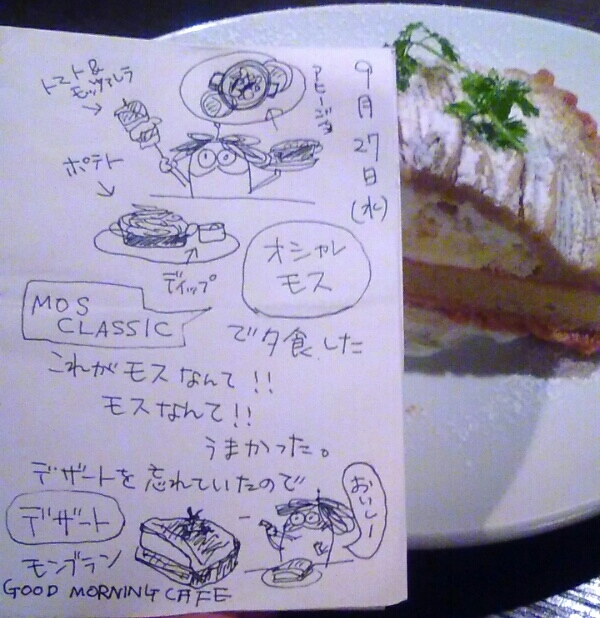 9月27日(水)
トマト&
モッツァレラ
アヒージョ
ポテト
ディップ
オシャレ
モス
MOS
CLASSIC
で夕食した
これがモスなんて!!
モスなんて!!
うまかった。
デザートを忘れていたので
デザート
モンブラン
おいしー
GOOD MORNING CAFE